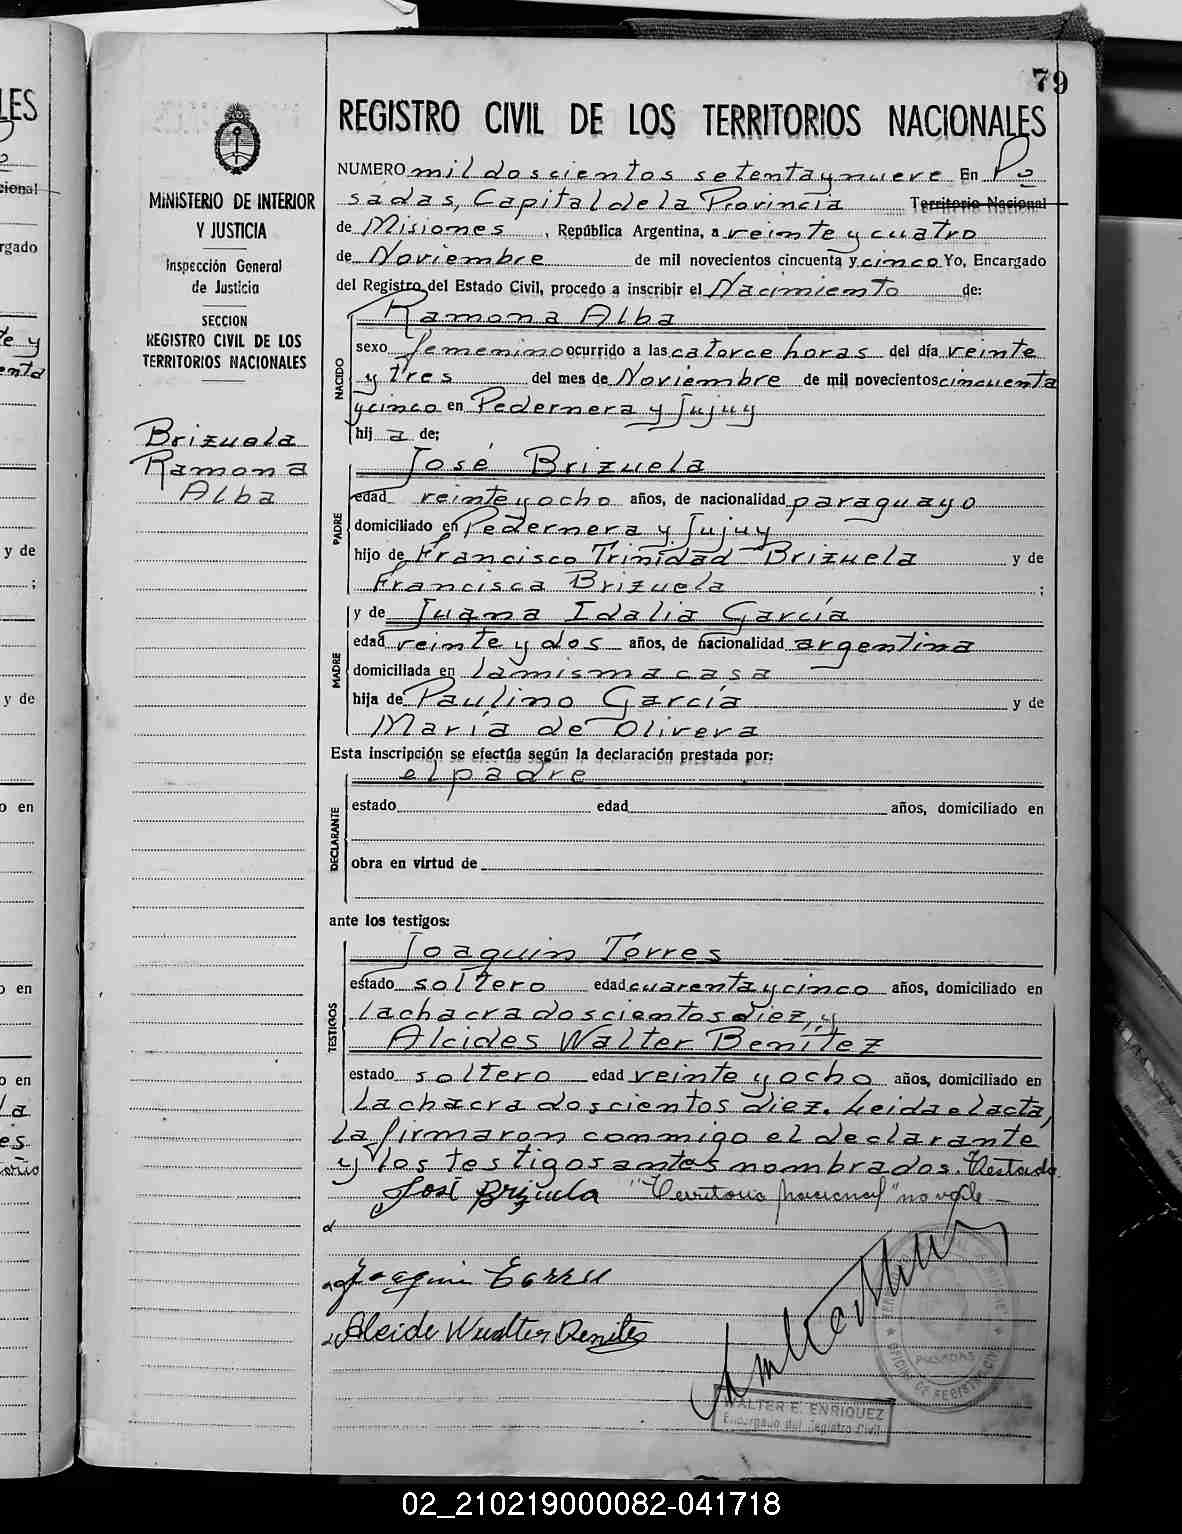 79
REGISTRO CIVIL DE LOS TERRITORIOS NACIONALES
MINISTERIO DE INTERIOR
Y JUSTICIA
Inspección General
de Justicia
SECCION
REGISTRO CIVIL DE LOS
TERRITORIOS NACIONALES
Brizuela
Ramona
Alba
NUMERO mil doscientos setenta y nueve En Po
sadas, Capital de la Provincia Territorio Nacional
de Misiones, República Argentina, a veinte y cuatro
de Noviembre de mil novecientos cincuenta y cinco Yo, Encargado
del Registro del Estado Civil, procedo a inscribir el Nacimiento de:
NACIDO
Ramona Alba
sexo femenino ocurrido a las catorce horas del día veinte
y tres del mes de Noviembre de mil novecientos cincuenta
y cinco en Pedernera y Jujuy
hij a de;
PADRE
José Brizuela
edad veinte y ocho años, de nacionalidad paraguayo
domiciliado en Pedernera y Jujuy
hijo de Francisco Trinidad Brizuela y de
Francisca Brizuela ;
MADRE
y de Juana Idalia García
edad veinte y dos años, de nacionalidad argentina
domiciliada en la misma casa
hija de Paulino García y de
María de Olivera
Esta inscripción se efectúa según la declaración prestada por:
DECLARANTE
el padre
estado edad años, domiciliado en
obra en virtud de
ante los testigos:
TESTIGOS
Joaquin Torres
estado soltero edad cuarenta y cinco años, domiciliado en
la chacra doscientos diez, y
Alcides Walter Benítez
estado soltero edad veinte y ocho años, domiciliado en
la chacra doscientos diez. Leida el acta,
la firmaron conmigo el declarante
y los testigos antes nombrados. Testado
José Brizuela "Territorio Nacional" no vale
Joaquin Torres
Alcide Walter Benites
POSADAS
WALTER E. ENRIQUEZ
Encargado del Registro Civil
02_210219000082-041718